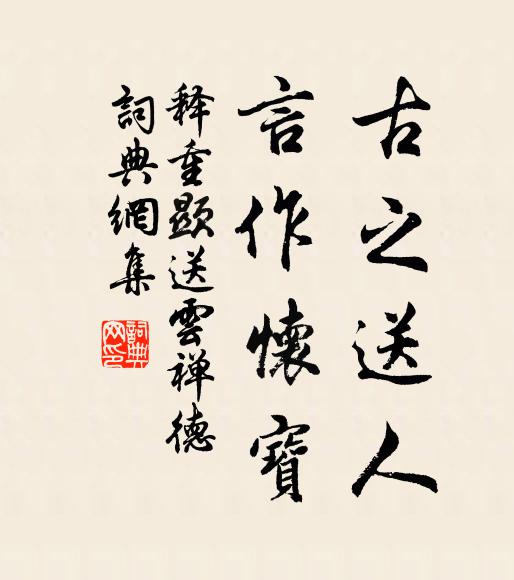 古之送人
言作懷寶
释重顯送雲禅德
詞典網集
詞典网印